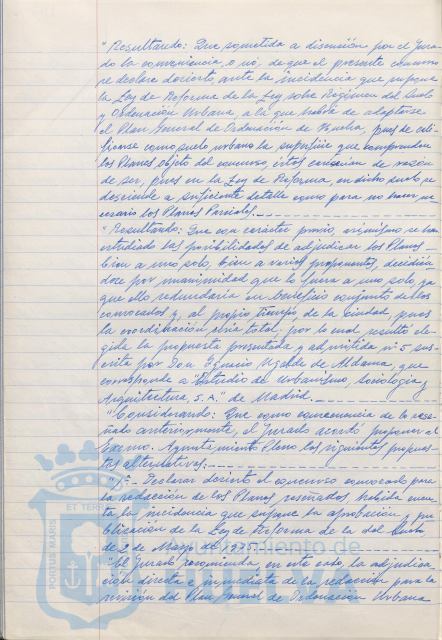 "Resultando: Que sometida a discusión por el Jura-
do la conveniencia, o no, de que el presente concurso
se declare desierto, ante la incidencia que supone
la Ley de Reforma de la Ley sobre Régimen del Suelo
y Ordenación Urbana a la que habrá de adaptarse
el Plan General de Ordenación de Huelva, pues de cali-
ficarse como suelo urbano la superficie que comprenden
los Planes objeto del concurso, éstos carecerían de razón
de ser, pues en la Ley de Reforma, en dicho suelo se
desciende a suficiente detalle como para no hacer ne-
cesario los Planes Parciales.
"Resultando: Que con carácter previo, asimismo se han
estudiado las posibilidades de adjudicar los Planes
bien a uno solo, bien a varios proponentes, decidién-
dose por unanimidad que lo fuera a uno solo, ya
que ello redundaría en beneficio conjunto de los
convocados y, al propio tiempo de la ciudad, pues
la coordinación sería total, por lo cual resultó ele-
gida la propuesta presentada y admitida nº 5 sus-
crita por Don Ignacio Ugalde de Aldama, que
corresponde a "Estudio de Urbanismo, Sociología y
Arquitectura, S.A." de Madrid.
"Considerando: Que como consecuencia de lo rese-
ñado anteriormente, el Jurado acordó proponer al
Excmo. Ayuntamiento Pleno las siguientes propues-
tas alternativas:
"1º- Declarar desierto el concurso convocado para
la redacción de los Planes reseñados habida cuen-
ta la incidencia que supone la aprobación y pu-
blicación de la Ley de Reforma de la del Suelo,
de 2 de Mayo de 1975.
"El Jurado recomienda, en este caso, la adjudica-
ción directa e inmediata de la redacción para la
revisión del Plan General de Ordenación Urbana
PORTUS MARIS
ET TERR
Ayuntamiento de
HUELVA